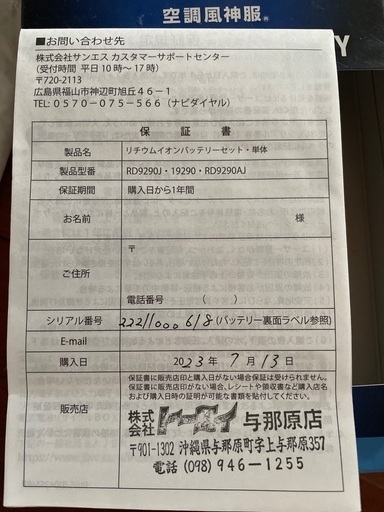 空調風神服®
Y
■お問い合わせ先
株式会社サンエス カスタマーサポートセンター
(受付時間 平日 10 時～ 17 時)
〒720-2113
広島県福山市神辺町旭丘４６－１
TEL: ０５７０－０７５－５６６（ナビダイヤル）
保 証 書
製品名 リチウムイオンバッテリーセット・単体
製品型番 RD9290J・19290・RD9290AJ
保証期間 購入日から1年間
お名前 様
〒
ご住所
電話番号 （ ）
シリアル番号 22211000618 (バッテリー裏面ラベル参照)
E-mail
購入日 2023年 7月 13日
保証書に販売店印と購入日がない場合保証は受けられません。
保証書に販売店印がない場合、レシートや領収書など購入店名
および購入日時の証明が可能な書類を貼付してください。
販売店
株式会社 与那原店
〒901-1302 沖縄県与那原町字上与那原357
電話 (098) 946-1255